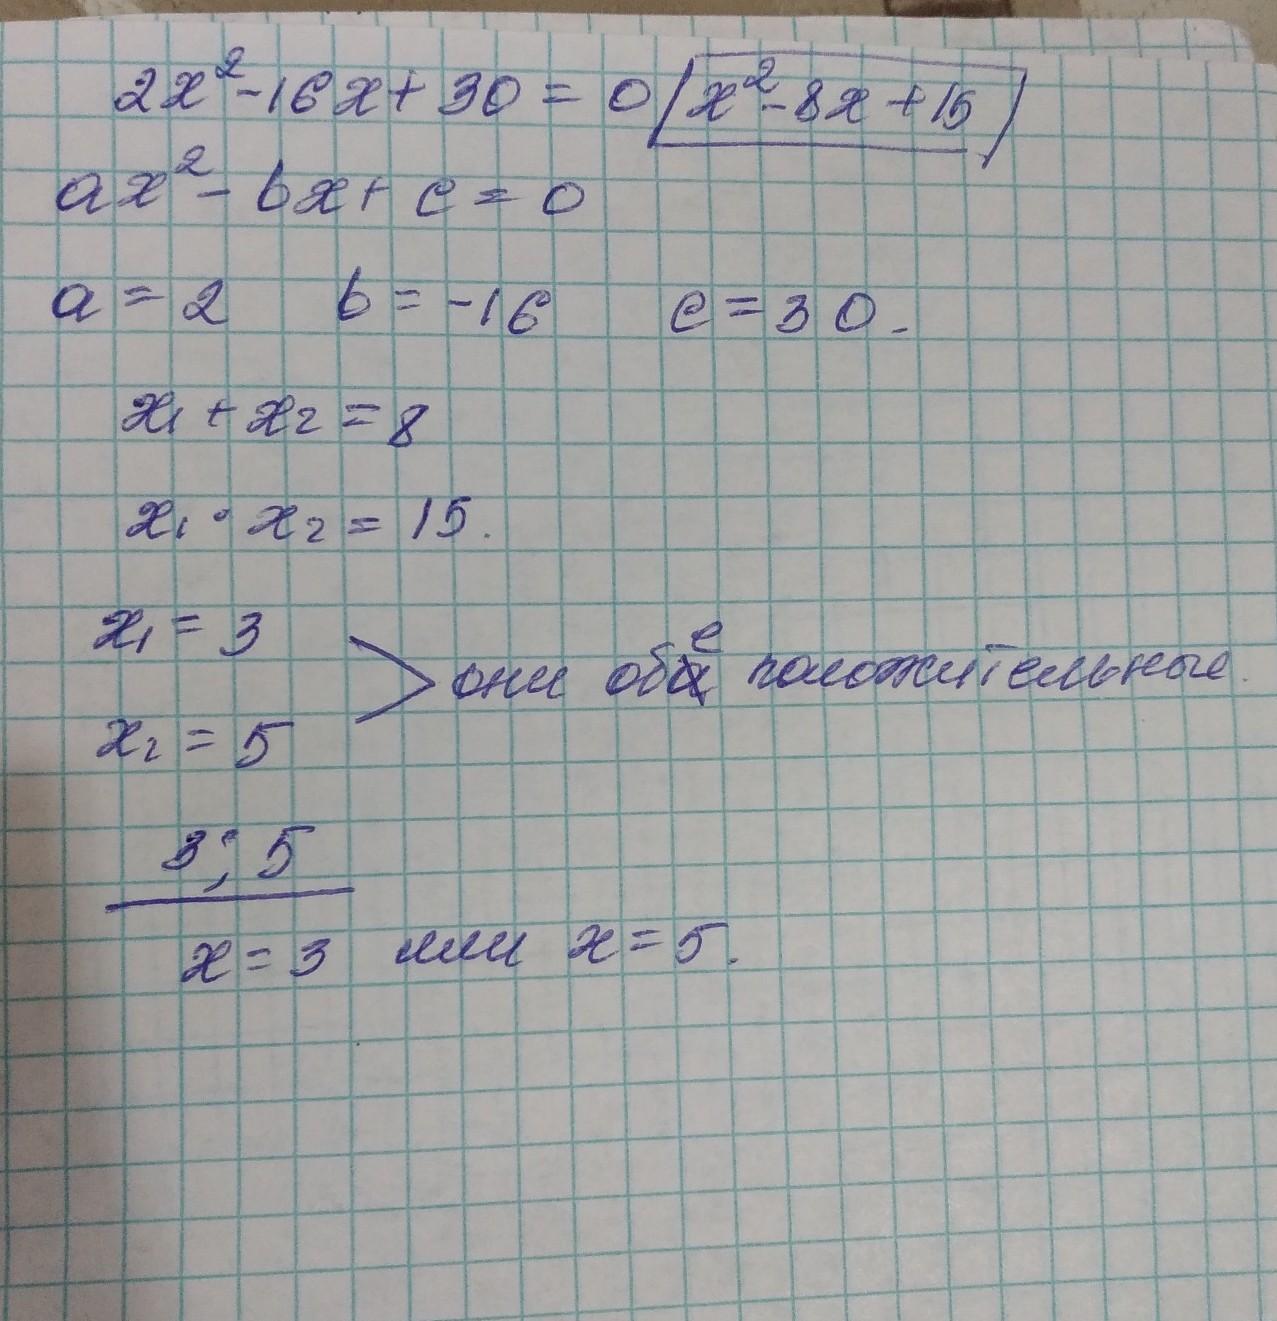 2x² - 16x + 30 = 0 / x² - 8x + 15 /
ax² - bx + c = 0
a = 2 b = -16 c = 30.
x₁ + x₂ = 8
x₁ · x₂ = 15.
x₁ = 3
они обе положительные.
x₂ = 5
3; 5
x = 3 или x = 5.